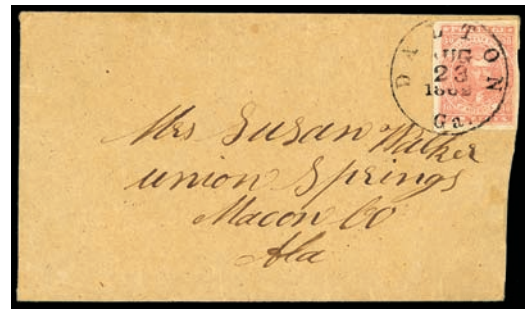 DALTON
AUG
23
1862
Ga.
Mrs Susan Walker
Union Springs
Macon Co
Ala